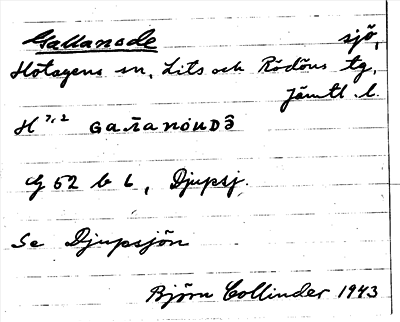 Gallanade sjö,
Hotagens sn, Lits och Rödöns tg,
Jämtl. l.
H 7,2 GaƛanòuDə̂
G 52 b b, Djupsj.
Se Djupsjön
Björn Collinder 1943